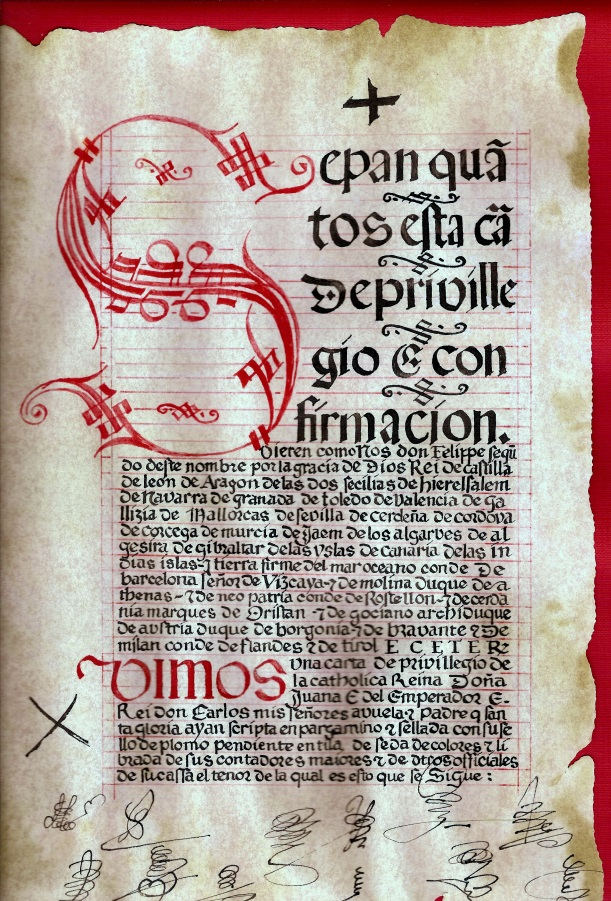 Sepan quã
tos esta cã
De priville
gio E con
firmacion.
Vieren como Nos don Felippe segũ
do deste nombre por la gracia de Dios Rei de castilla
de leon de Aragon de las dos secilias de hierelsalem
de Navarra de granada de toledo de valencia de ga
llizia de Mallorcas de sevilla de cerdeña de cordova
de corcega de murcia de Jaem de los algarves de al
gesira de gibraltar de las yslas de canaria de las in
dias islas ⁊ tierra firme del mar oceano conde De
barcelona señor de Vizcaya ⁊ de molina duque de a
thenas - ⁊ de neo patria conde de Rosellon ⁊ de cerda
nia marques de Oristan ⁊ de gociano archiduque
de avstria duque de borgonia ⁊ de bravante ⁊ De
milan conde de flandes ⁊ de tirol E C E T E R
VIMOS una carta de privillegio de
la catholica Reina Doña
Juana E del Emperador E
Rei don Carlos mis señores avuela ⁊ padre q san
ta gloria ayan scripta en pargamino ⁊ sellada con su se
llo de plomo pendiente en tila de seda de colores ⁊ li
brada de sus contadores maiores ⁊ de otros officiales
de su cassa el tenor de la qual es esto que se Sigue :